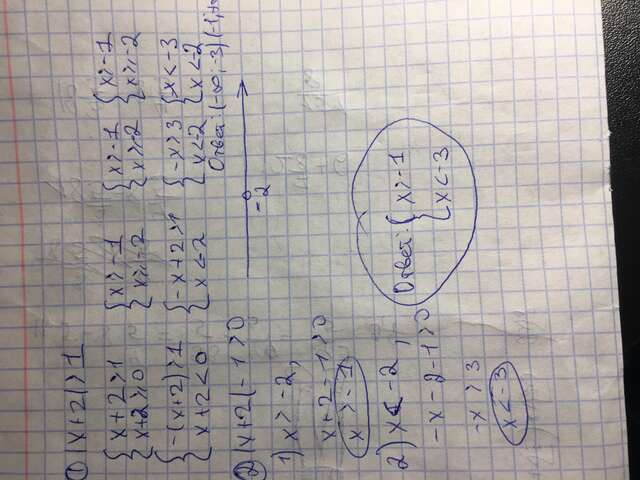 ① |x+2|>1
{x+2>1 {x>-1 {x>-1 {x>-1
{x+2≥0 {x≥-2 {x≥-2 {x≥-2
{-(x+2)>1 {-x+2>1 {-x>3 {x<-3
{x+2<0 {x<-2 {x<-2 {x<-2
Ответ: (-∞,-3) (-1,+∞
② |x+2|-1>0
-2
1) x>-2,
x+2-1>0
x>-1
2) x<-2,
-x-2-1>0
-x>3
x<-3
Ответ: {x>-1
{x<-3